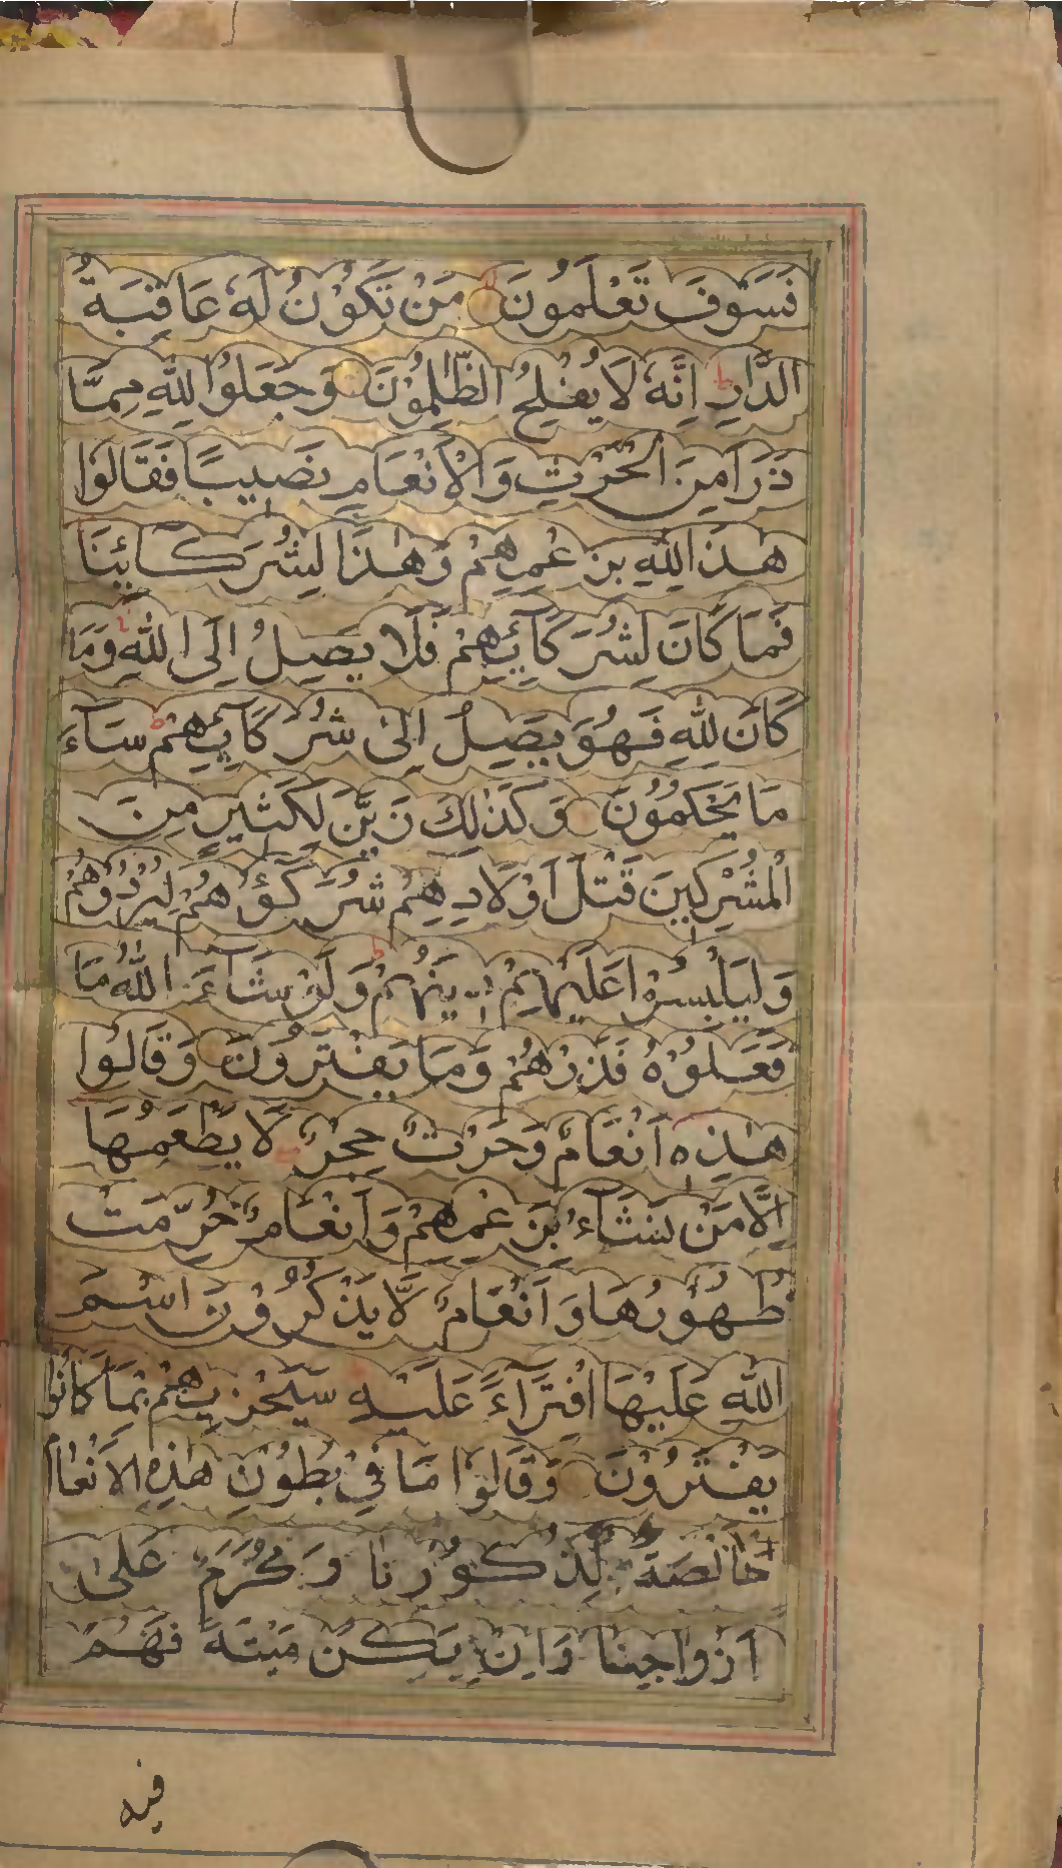 فَسَوْفَ تَعْلَمُونَ مَنْ تَكُوْنُ لَهٗ عَاقِبَةُ
الدَّارِ ط اِنَّهٗ لَا يُفْلِحُ الظّٰلِمُوْنَ وَجَعَلُوا لِلّٰهِ مِمَّا
ذَرَاَ مِنَ الْحَرْثِ وَالْاَنْعَامِ نَصِيبًا فَقَالُوْا
هٰذَا لِلّٰهِ بِزَعْمِهِمْ وَهٰذَا لِشُرَكَائِنَا
فَمَا كَانَ لِشُرَكَآئِهِمْ فَلَا يَصِلُ اِلَى اللّٰهِ وَمَا
كَانَ لِلّٰهِ فَهُوَ يَصِلُ اِلٰى شُرَكَآئِهِمْ ط سَآءَ
مَا يَحْكُمُوْنَ وَكَذٰلِكَ زَيَّنَ لِكَثِيرٍ مِنَ
الْمُشْرِكِينَ قَتْلَ اَوْلَادِهِمْ شُرَكَآؤُهُمْ لِيُرْدُوْهُمْ
وَلِيَلْبِسُوْا عَلَيْهِمْ دِينَهُمْ ط وَلَوْ شَآءَ اللّٰهُ مَا
فَعَلُوْهُ فَذَرْهُمْ وَمَا يَفْتَرُوْنَ وَقَالُوْا
هٰذِهٖ اَنْعَامٌ وَحَرْثٌ حِجْرٌ لَا يَطْعَمُهَا
اِلَّا مَنْ نَشَآءُ بِزَعْمِهِمْ وَاَنْعَامٌ حُرِّمَتْ
ظُهُوْرُهَا وَاَنْعَامٌ لَّا يَذْكُرُوْنَ اسْمَ
اللّٰهِ عَلَيْهَا افْتِرَآءً عَلَيْهِ سَيَجْزِيهِمْ بِمَا كَانُوْا
يَفْتَرُوْنَ وَقَالُوْا مَا فِيْ بُطُوْنِ هٰذِهِ الْاَنْعَامِ
خَالِصَةٌ لِّذُكُوْرِنَا وَمُحَرَّمٌ عَلٰى
اَزْوَاجِنَا وَاِنْ يَكُنْ مَيْتَةً فَهُمْ
فيه